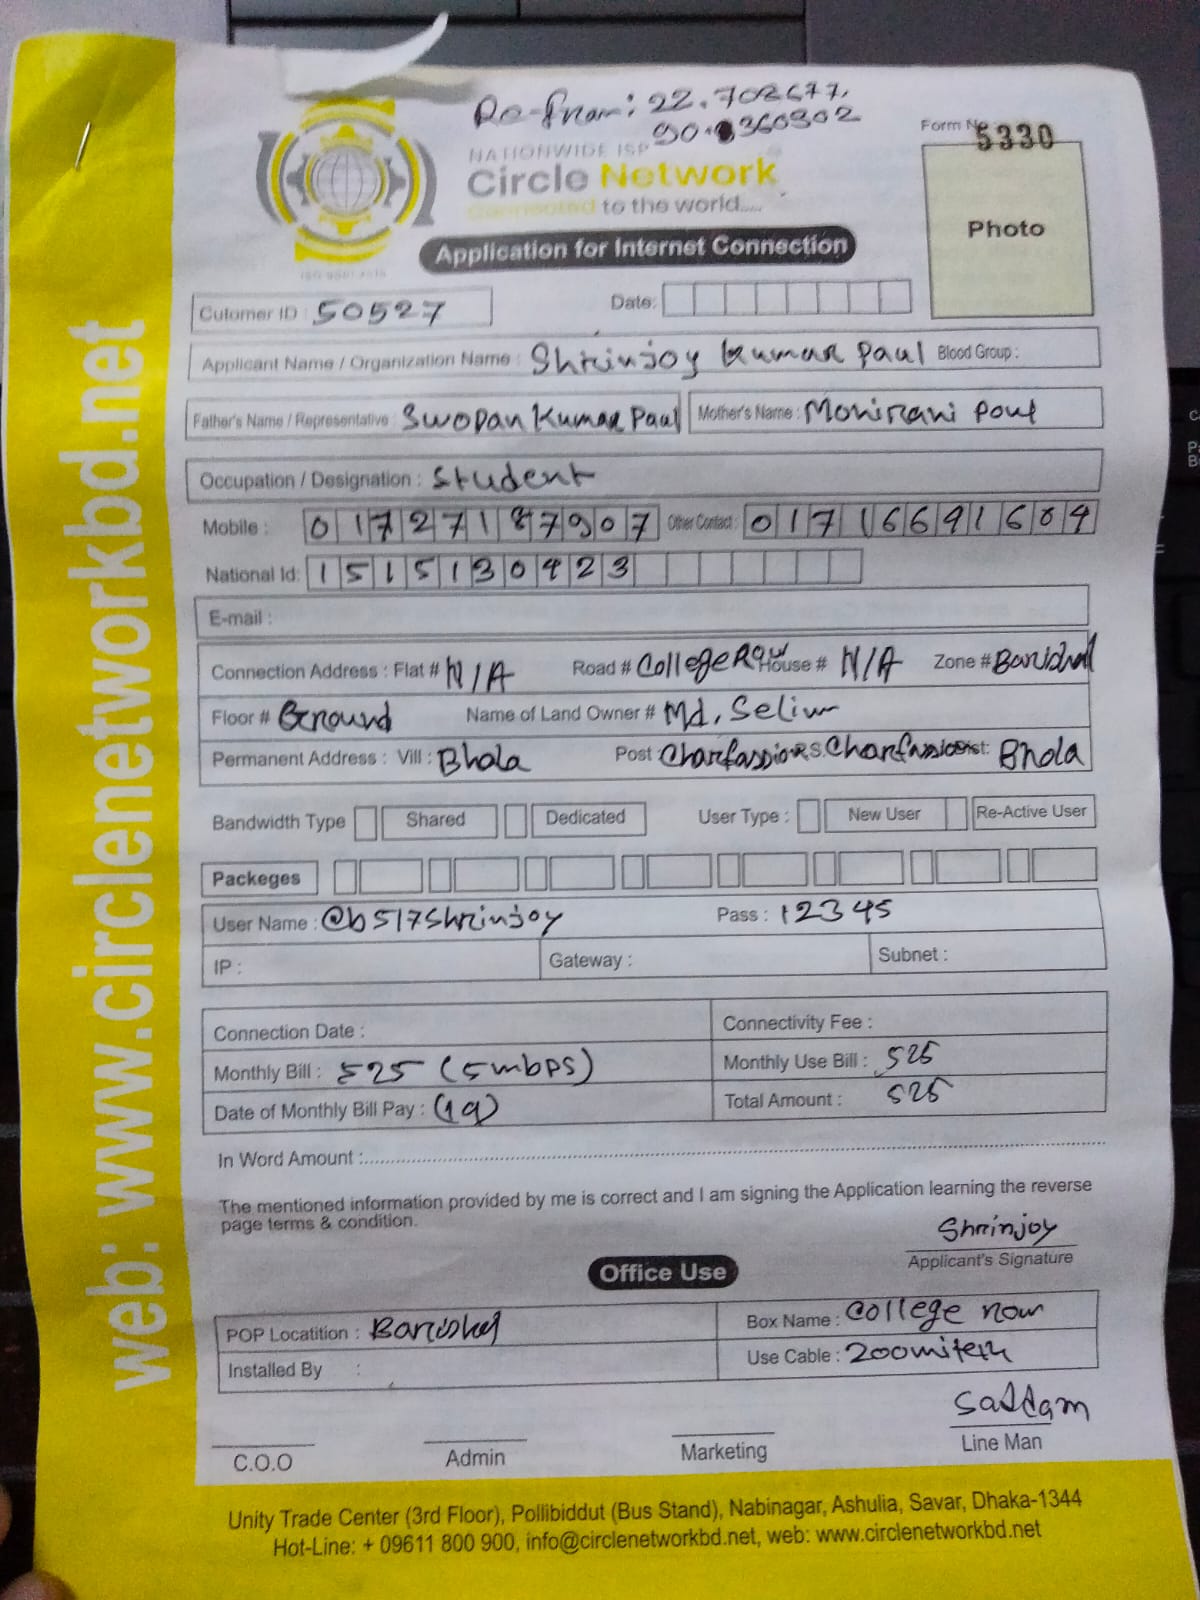 Re-fnam: 22.702677,
90.360302
Form No. 5330
NATIONWIDE ISP
Circle Network
Connected to the world.....
Photo
Application for Internet Connection
ISO 9001:2015
Cutomer ID : 50527 Date:
Applicant Name / Organization Name : Shrinjoy Kumar Paul Blood Group :
Father's Name / Representative : Swopan Kumar Paul Mother's Name : Monirani Poul
Occupation / Designation : Student
Mobile : 01727187907 Other Contact : 01716691609
National Id: 1515130423
E-mail :
Connection Address : Flat # N/A Road # College Row House # N/A Zone # Barishal
Floor # Ground Name of Land Owner # Md, Selim
Permanent Address : Vill : Bhola Post : Charfassion P.S: Charfassion Dist: Bhola
Bandwidth Type Shared Dedicated User Type : New User Re-Active User
Packeges
User Name : @b517Shrinjoy Pass : 12345
IP : Gateway : Subnet :
Connection Date : Connectivity Fee :
Monthly Bill : 525 (5mbps) Monthly Use Bill : 525
Date of Monthly Bill Pay : Total Amount : 525
In Word Amount :
The mentioned information provided by me is correct and I am signing the Application learning the reverse
page terms & condition.
Shrinjoy
Applicant's Signature
Office Use
POP Locatition : Barishal Box Name : College row
Installed By : Use Cable : 200 miter
Saddam
C.O.O Admin Marketing Line Man
Unity Trade Center (3rd Floor), Pollibiddut (Bus Stand), Nabinagar, Ashulia, Savar, Dhaka-1344
Hot-Line: + 09611 800 900, info@circlenetworkbd.net, web: www.circlenetworkbd.net
web: www.circlenetworkbd.net